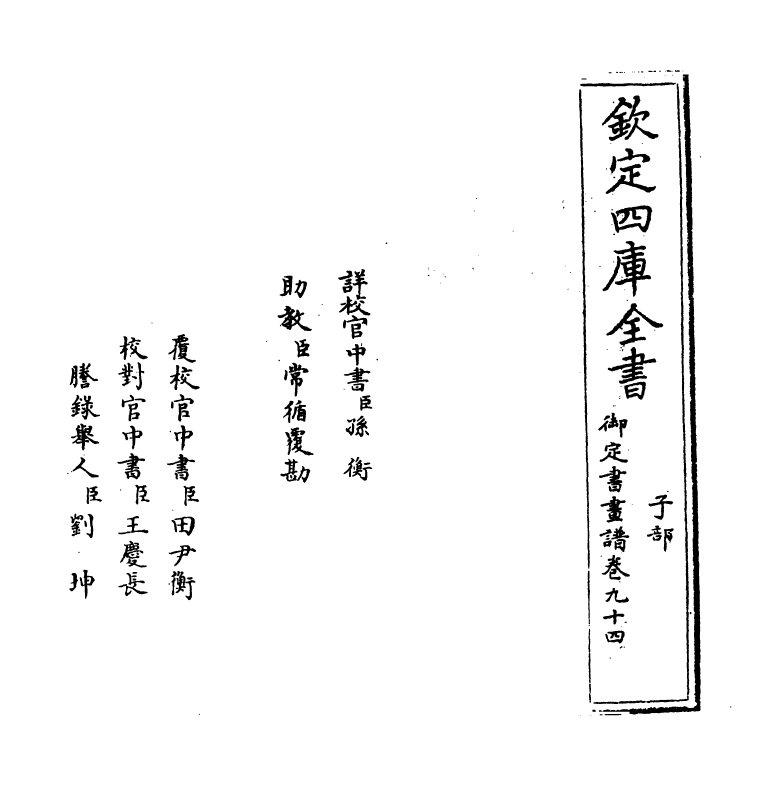 欽定四庫全書
子部
御定書畫譜卷九十四
詳校官中書臣孫衡
助教臣常循覆勘
覆校官中書臣田尹衡
校對官中書臣王慶長
謄錄舉人臣劉坤